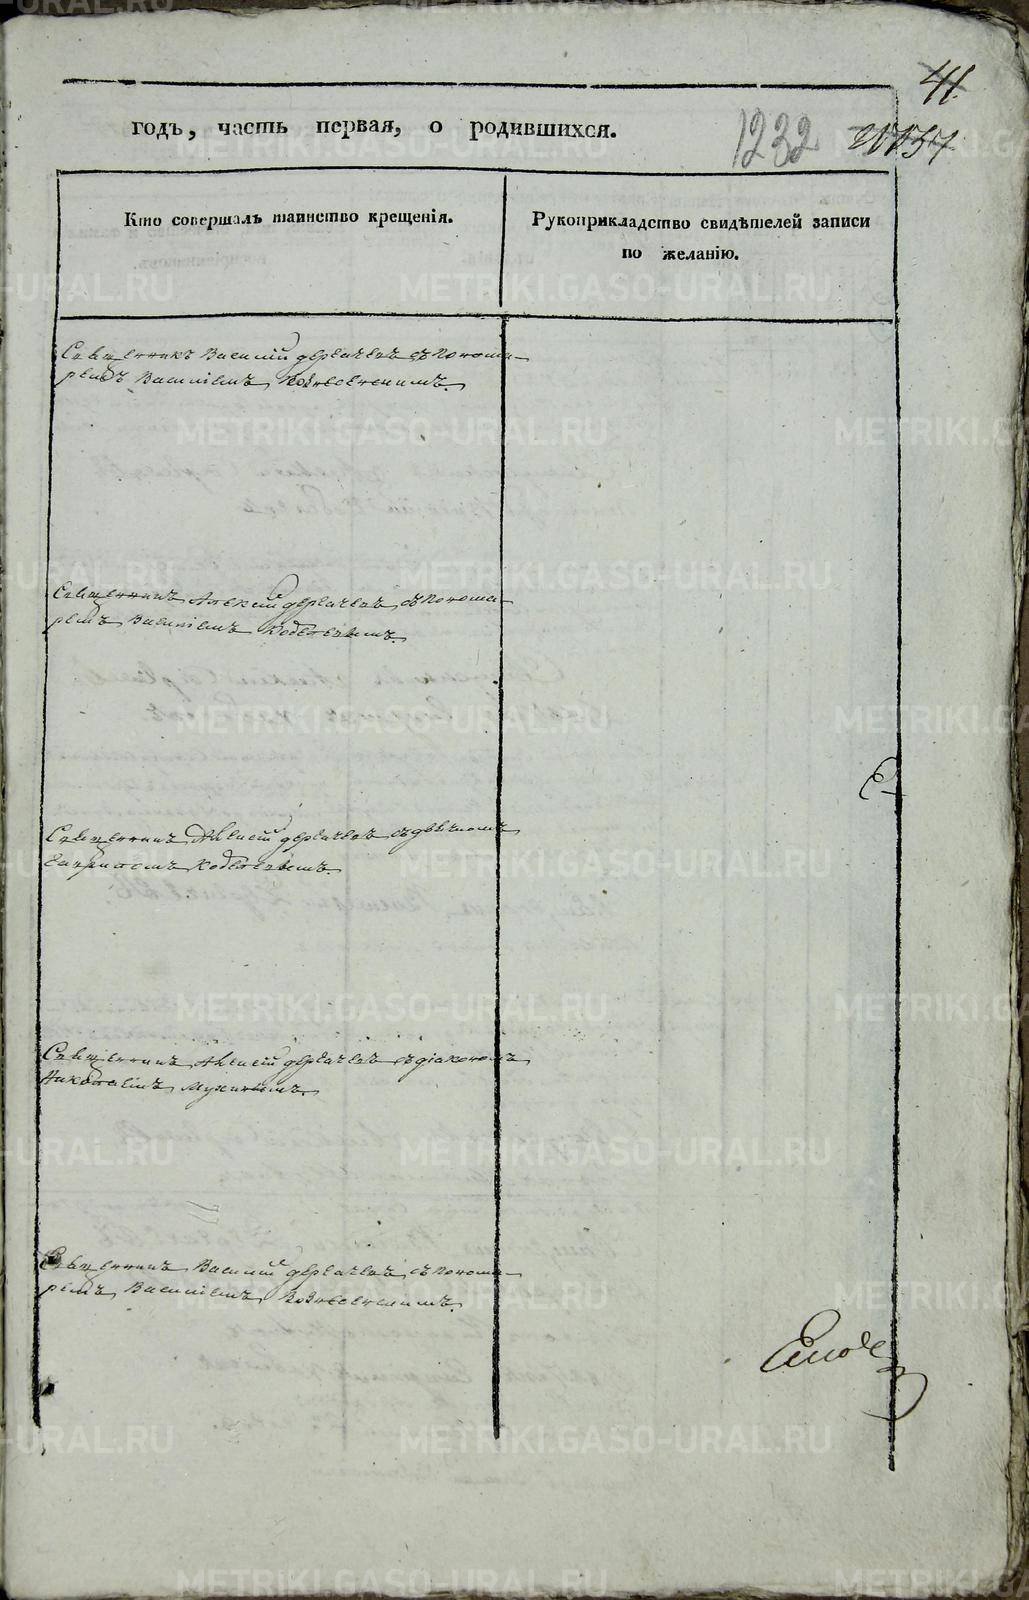 41
годъ, часть первая, о родившихся.
1232
Кто совершалъ таинство крещенія.
Рукоприкладство свидѣтелей записи
по желанію.
Священникъ Василій Дерябинъ съ понома-
ремъ Василіемъ Вознесенскимъ.
Священникъ Алексій Дерябинъ съ понома-
ремъ Василіемъ
Священникъ Алексій Дерябинъ съ дьячкомъ
Священникъ Алексій Дерябинъ съ діакономъ
Николаемъ Мухинымъ.
Священникъ Василій Дерябинъ съ понома-
ремъ Василіемъ Вознесенскимъ.
METRIKI.GASO-URAL.RU